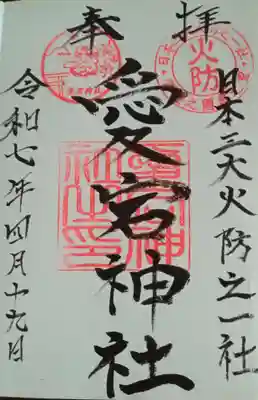 奉拝
日本三大火防之一社
愛宕神社
令和七年四月十九日
火防
愛宕神
社之印